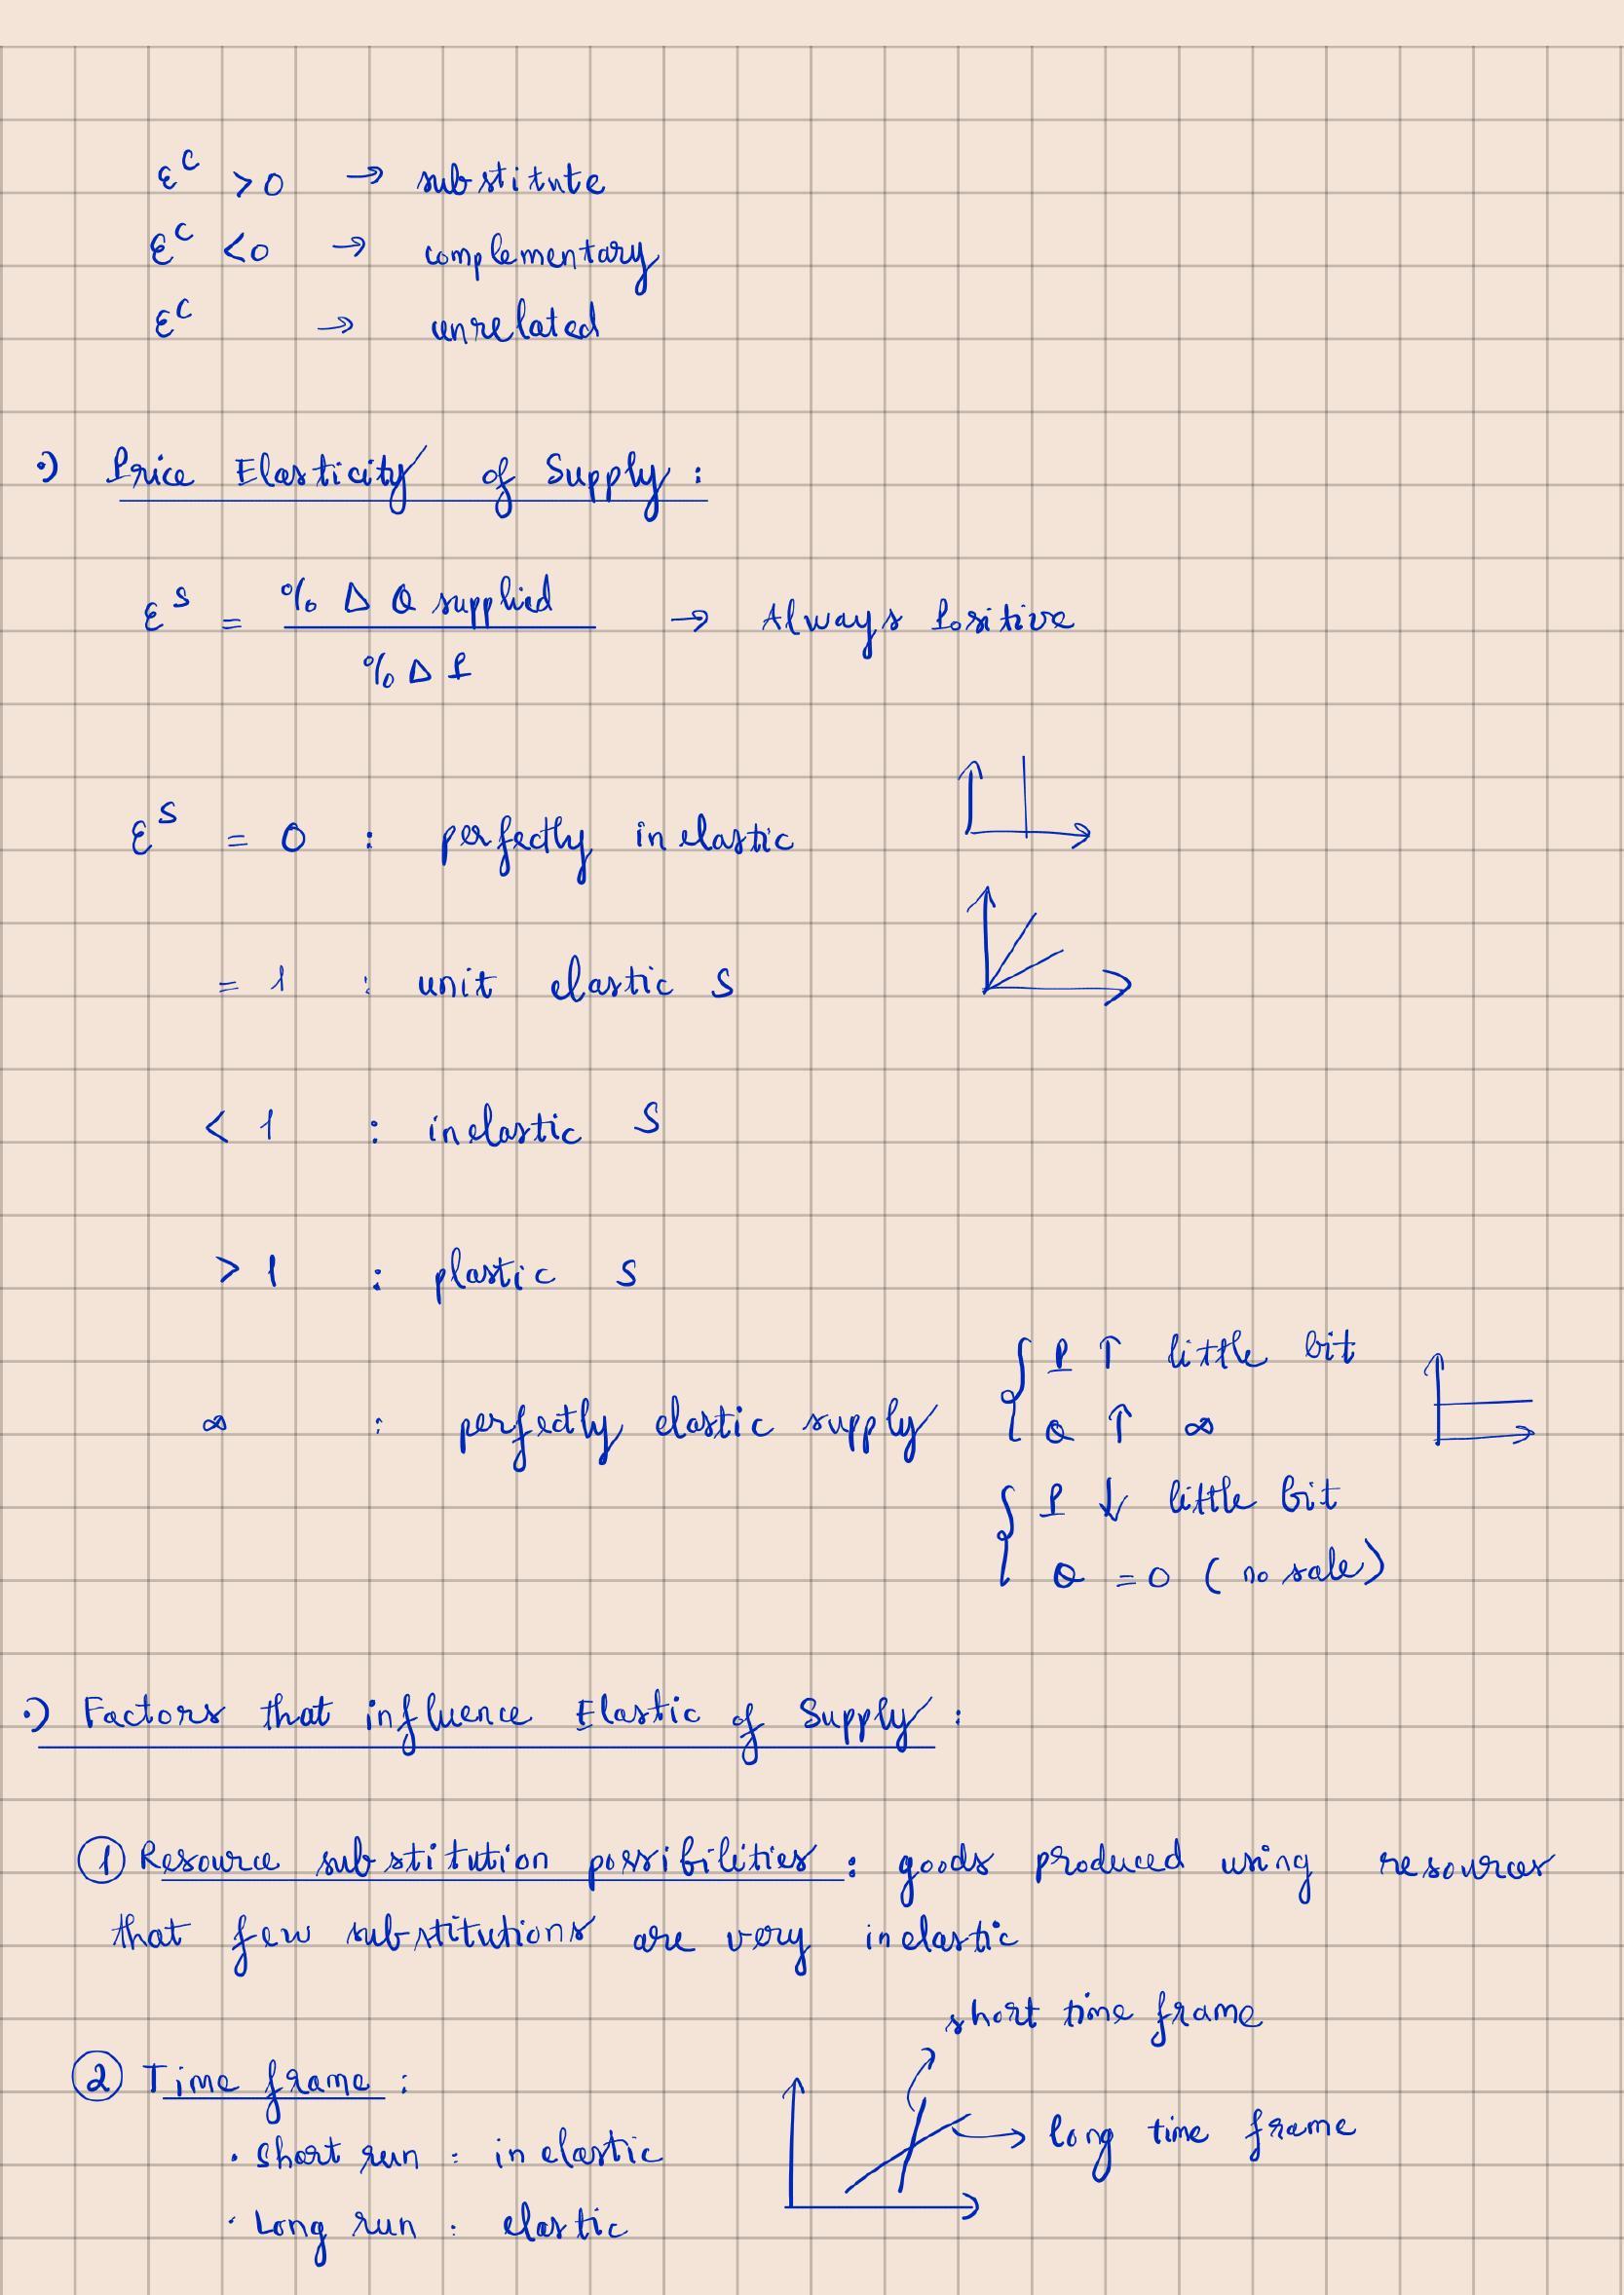 εᶜ > 0 → substitute
εᶜ < 0 → complementary
εᶜ → unrelated
•) Price Elasticity of Supply :
εˢ = % Δ Q supplied / % Δ P → Always Positive
εˢ = 0 : perfectly inelastic
= 1 : unit elastic S
< 1 : inelastic S
> 1 : plastic S
∞ : perfectly elastic supply { P ↑ little bit
Q ↑ ∞
{ P ↓ little bit
Q = 0 (no sale)
•) Factors that influence Elastic of Supply :
① Resource substitution possibilities : goods produced using resources
that few substitutions are very inelastic
short time frame
② Time frame :
long time frame
• Short run : inelastic
• Long run : elastic